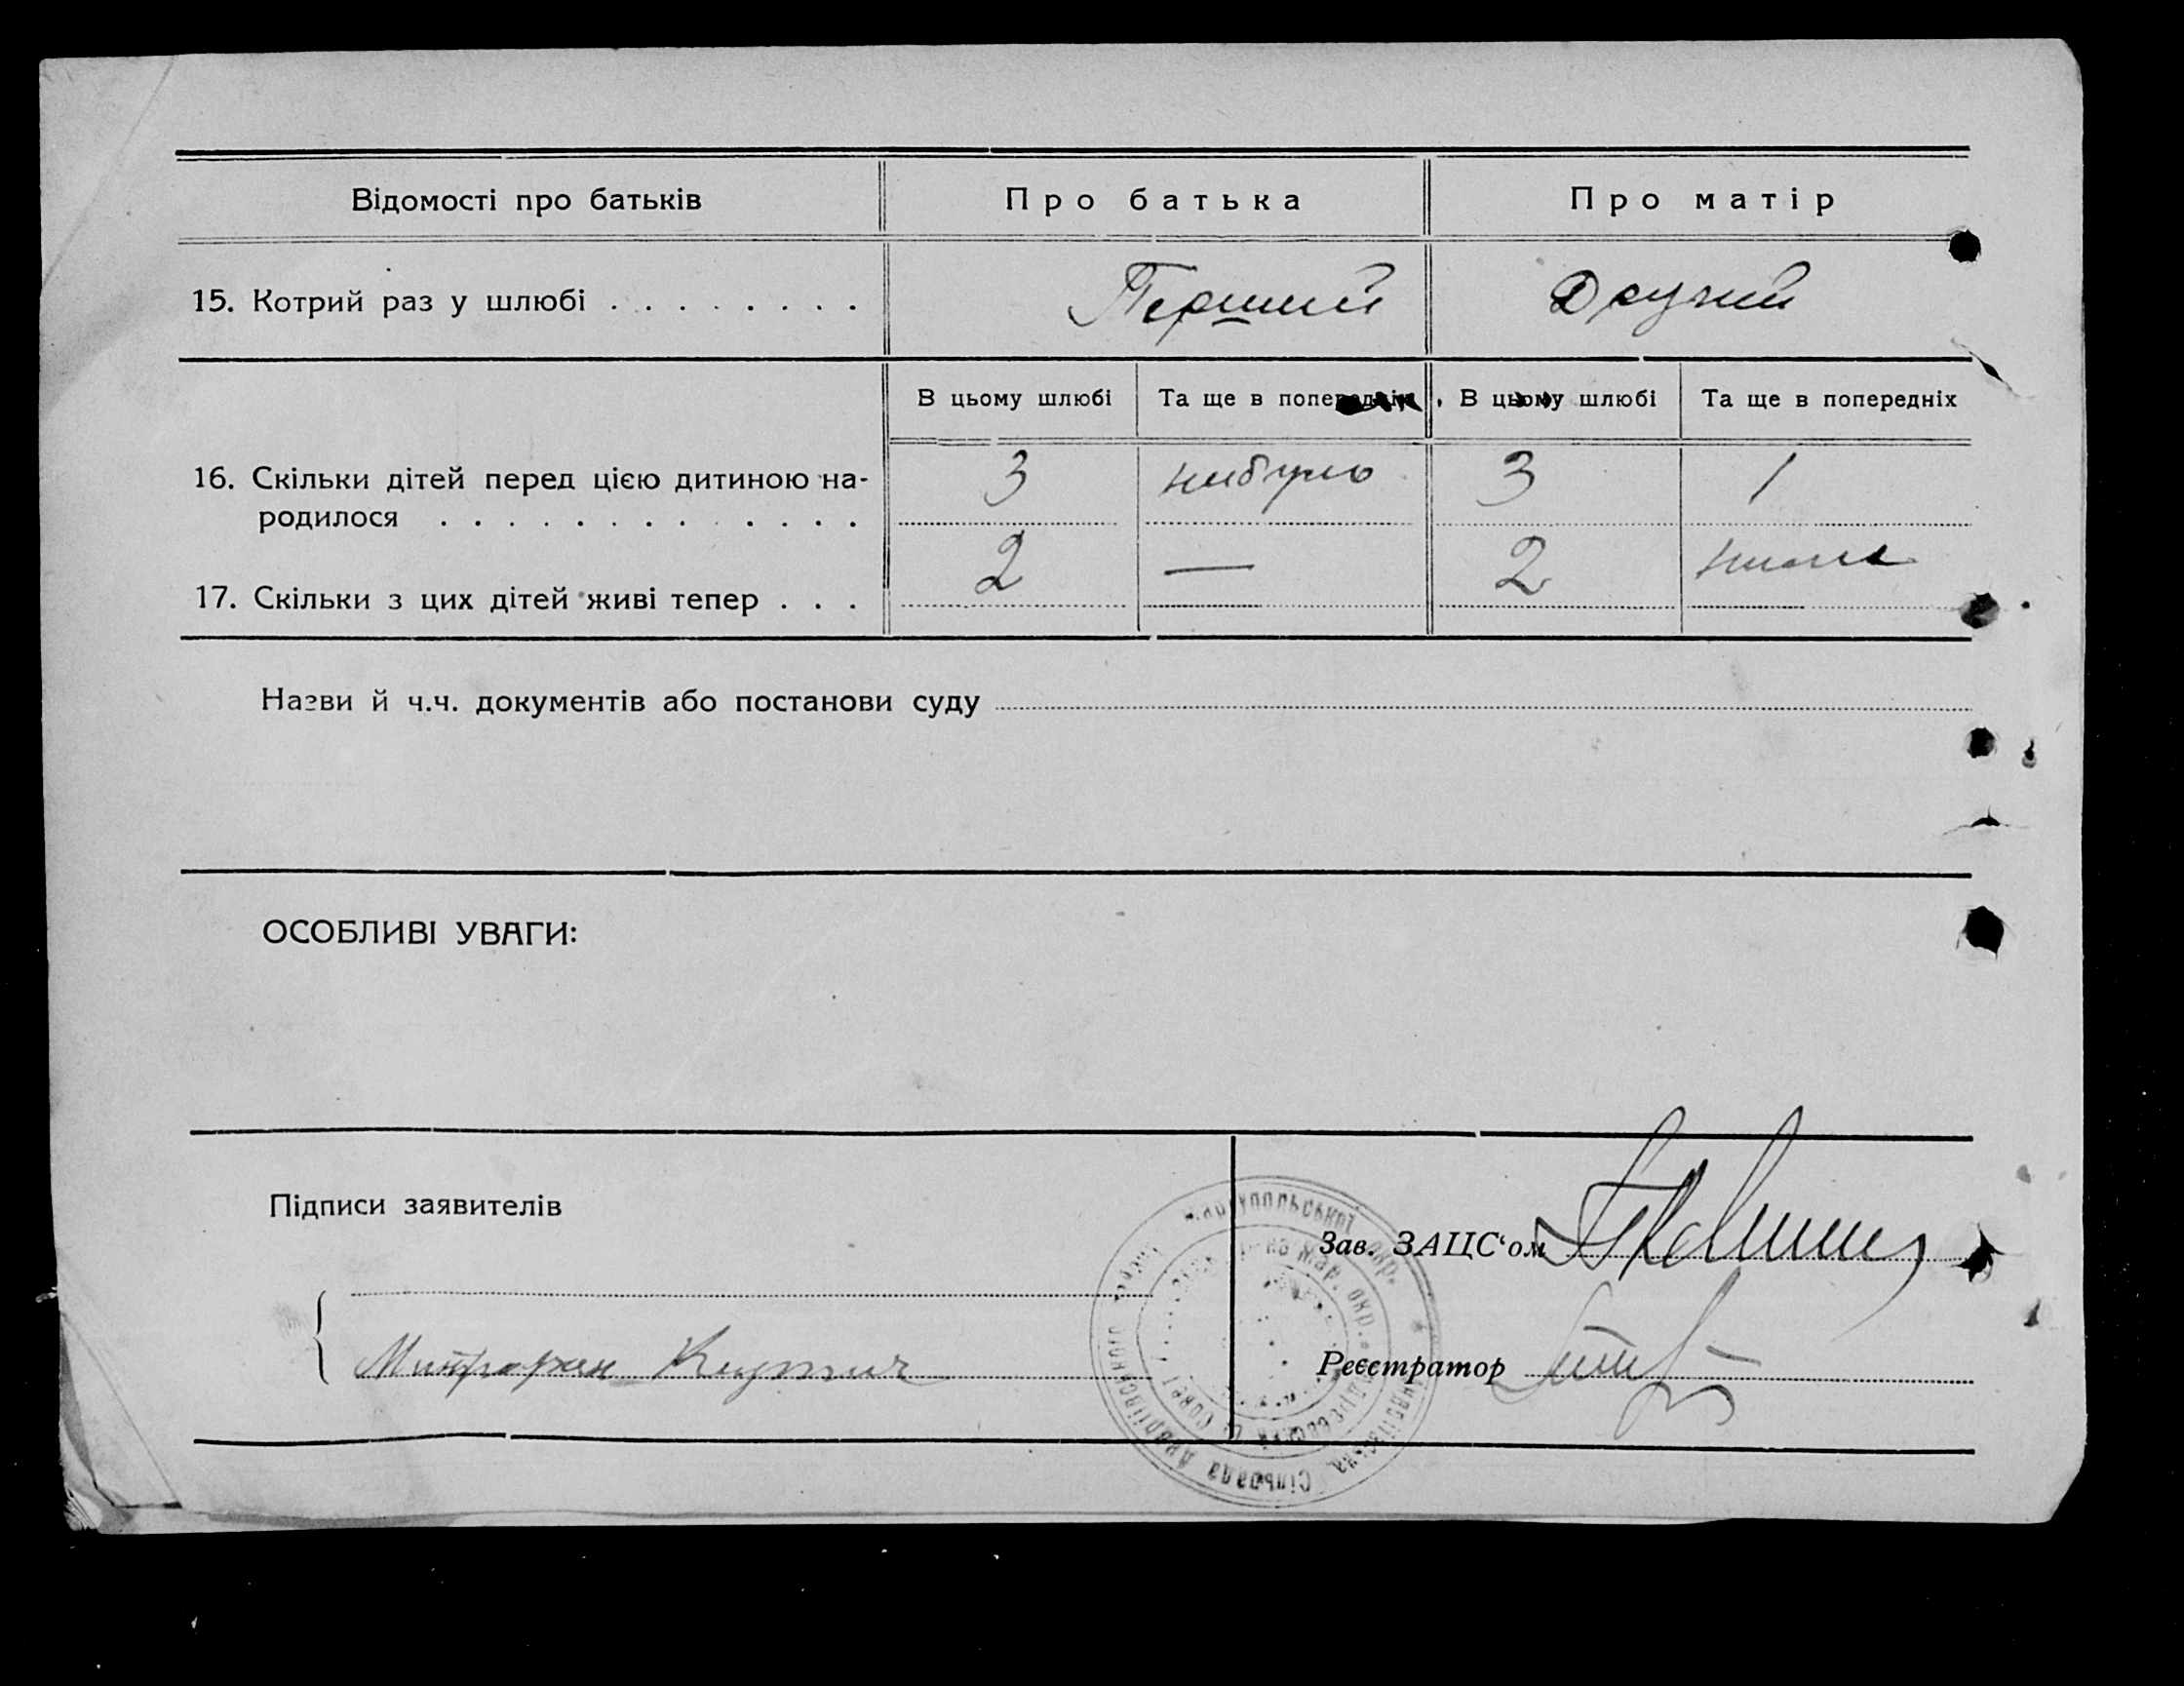 Відомості про батьків Про батька Про матір
15. Котрий раз у шлюбі . . . . . . . . Перший Другий
В цьому шлюбі Та ще в попередніх В цьому шлюбі Та ще в попередніх
16. Скільки дітей перед цією дитиною на- 3 небуло 3 1
родилося . . . . . . . . . . . . .
17. Скільки з цих дітей живі тепер . . . 2 — 2 нима
Назви й ч.ч. документів або постанови суду
ОСОБЛИВІ УВАГИ:
Підписи заявителів
Зав. ЗАЦС‘ом
Митрофан
Реєстратор
Маріупольської окр.
Сільрада